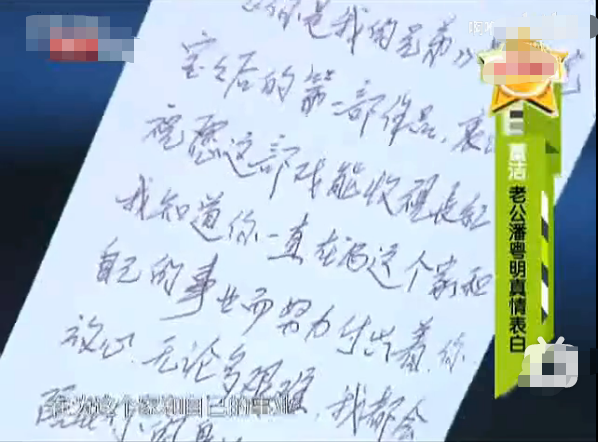 你是我的兄弟》
宝之后的第一部作品、衷
祝愿这部戏能收视长红
我知道你一直在为这个家和
自己的事业而努力付出着,你
放心,无论多艰难,我都会
在为这个家和自己的事业
董洁 老公潘粤明真情表白